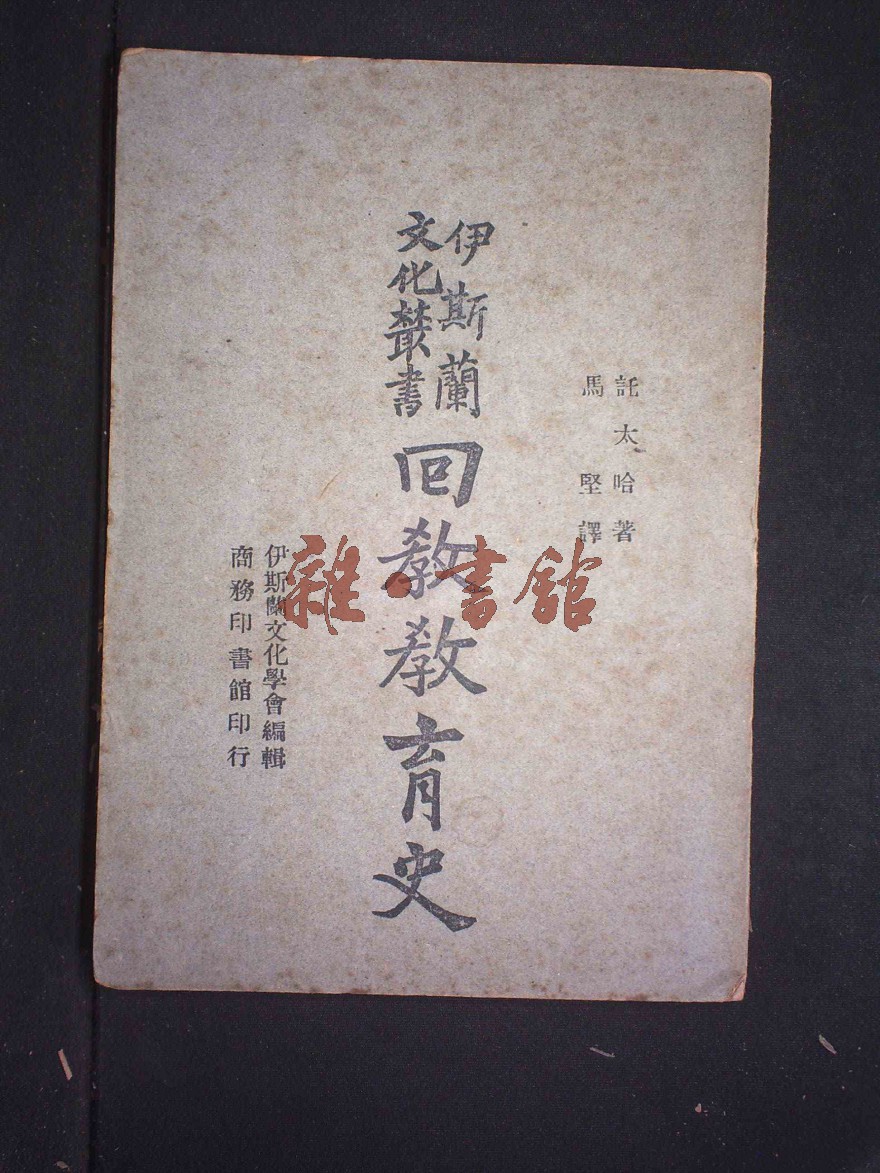 託太哈著
馬堅譯
伊斯蘭
文化叢書
回教教育史
伊斯蘭文化學會編輯
商務印書館印行
雜·書館